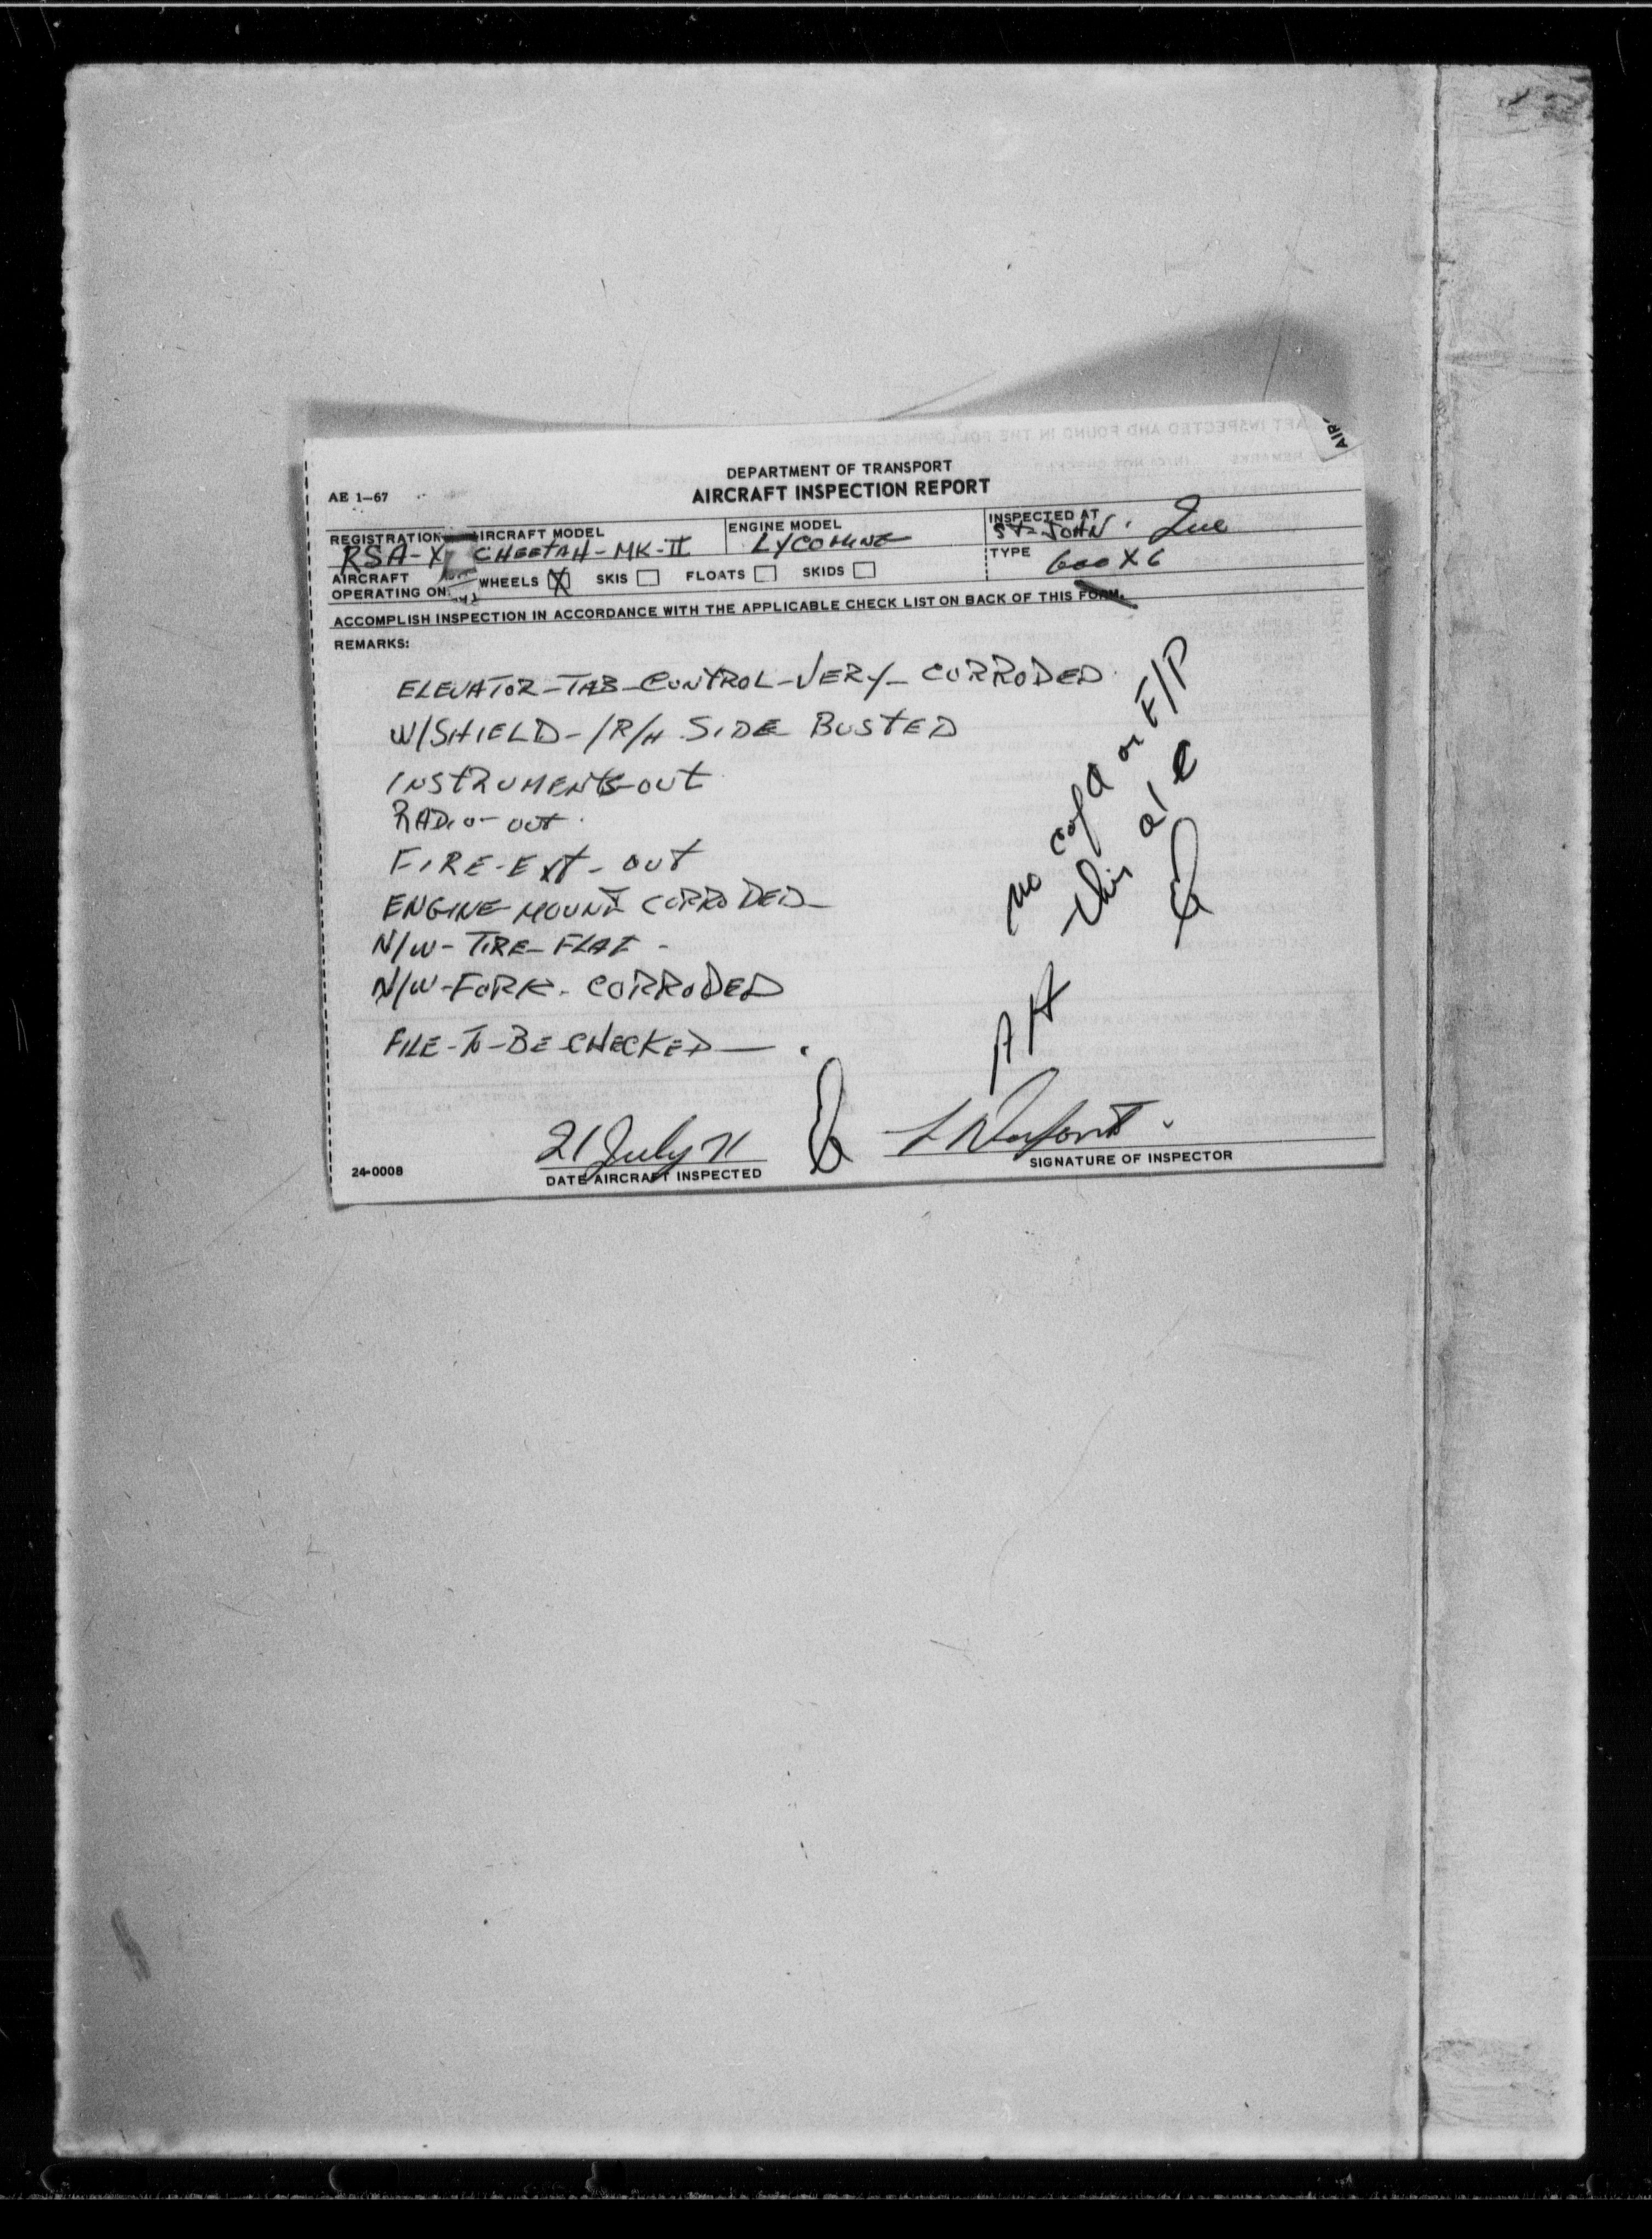 AIRC
DEPARTMENT OF TRANSPORT
AE 1-67
AIRCRAFT INSPECTION REPORT
REGISTRATION AIRCRAFT MODEL ENGINE MODEL INSPECTED AT
RSA-X CHEETAH-MK-II LYCOMING ST-JOHN. Que
AIRCRAFT OPERATING ON: WHEELS X SKIS FLOATS SKIDS TYPE 600X6
ACCOMPLISH INSPECTION IN ACCORDANCE WITH THE APPLICABLE CHECK LIST ON BACK OF THIS FORM.
REMARKS:
ELEVATOR-TAB-CONTROL-VERY-CORRODED
W/SHIELD-/R/H SIDE BUSTED
INSTRUMENTS-OUT
RADIO-OUT
FIRE-EXT-OUT
ENGINE MOUNT CORRODED-
N/W-TIRE-FLAT-
N/W-FORK-CORRODED
FILE-TO-BE-CHECKED-.
no C of A or F/P
this a/c
21 July 71
DATE AIRCRAFT INSPECTED
SIGNATURE OF INSPECTOR
24-0008